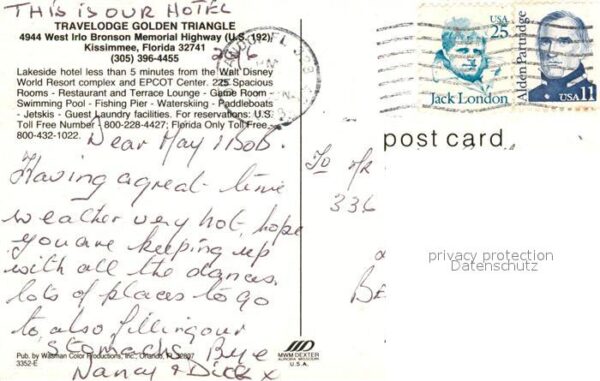 THIS IS OUR HOTEL
TRAVELODGE GOLDEN TRIANGLE
4944 West Irlo Bronson Memorial Highway (U.S. 192)
Kissimmee, Florida 32741
(305) 396-4455
Lakeside hotel less than 5 minutes from the Walt Disney
World Resort complex and EPCOT Center. 225 Spacious
Rooms - Restaurant and Terrace Lounge - Game Room -
Swimming Pool - Fishing Pier - Waterskiing - Paddleboats
- Jetskis - Guest Laundry facilities. For reservations: U.S.
Toll Free Number 1-800-228-4427; Florida Only Toll Free
800-432-1022.
Dear May & Bob.
Having a great time
weather very hot, hope
you are keeping up
with all the dances,
lots of places to go
to also filling our
stomachs Bye
Nancy & Dick x
Pub. by Color Productions, Inc., Orlando, FL
3352-E
MWM DEXTER
AURORA MISSOURI
U.S.A.
USA
25
Jack London
Alden Partridge
USA 11
post card
To
336
privacy protection
Datenschutz